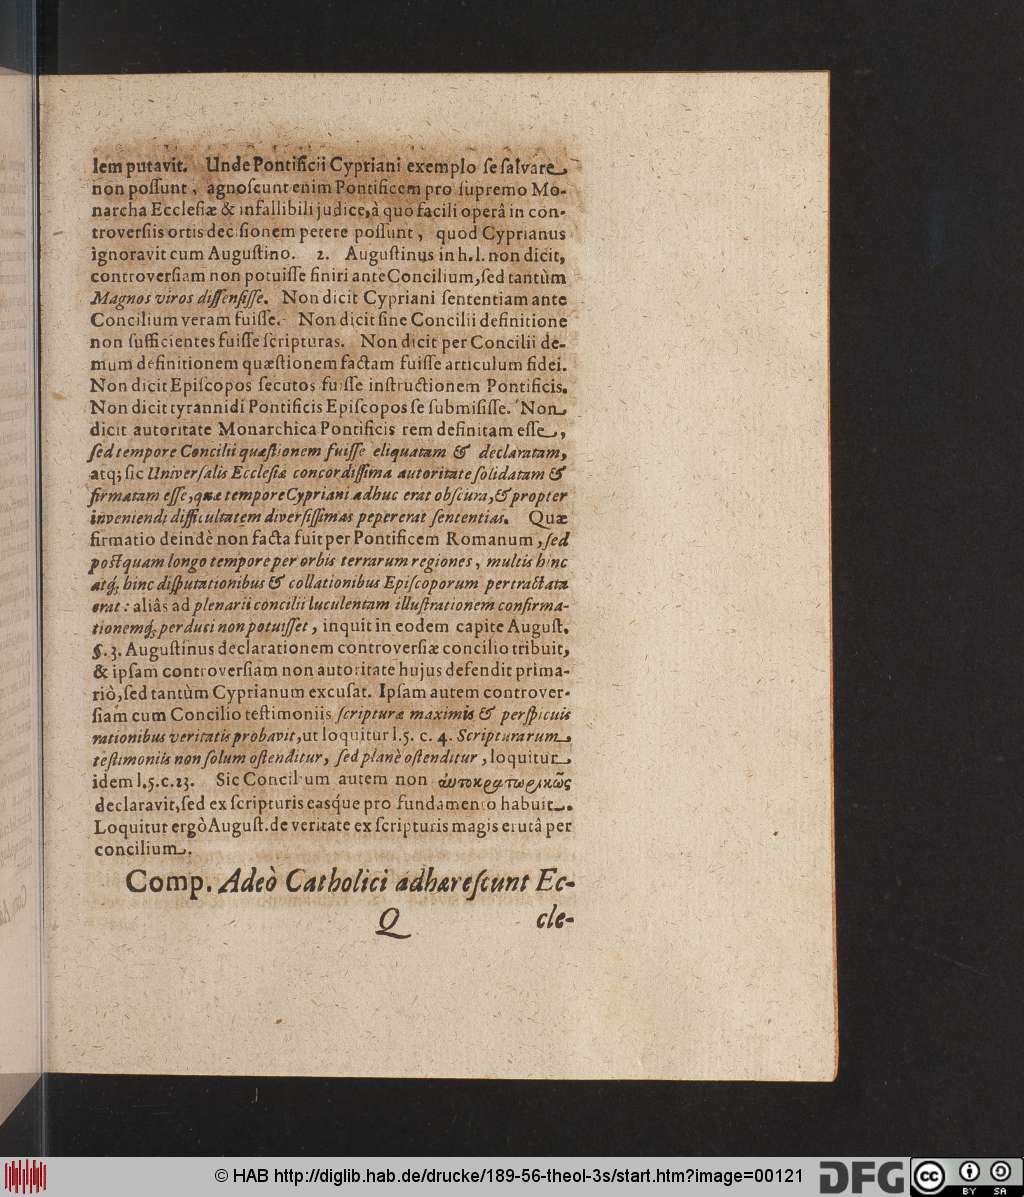 lem putavit. Unde Pontificii Cypriani exemplo ſe ſalvare
non poſſunt, agnoſcunt enim Pontificem pro ſupremo Mo-
narcha Eccleſiæ & infallibili judice, à quo facili operâ in con-
troverſiis ortis deciſionem petere poſſunt, quod Cyprianus
ignoravit cum Auguſtino. 2. Auguſtinus in h. l. non dicit,
controverſiam non potuiſſe finiri ante Concilium, ſed tantùm
Magnos viros diſſenſiſſe. Non dicit Cypriani ſententiam ante
Concilium veram fuiſſe. Non dicit ſine Concilii definitione
non ſufficientes fuiſſe ſcripturas. Non dicit per Concilii de-
mum definitionem quæſtionem factam fuiſſe articulum fidei.
Non dicit Epiſcopos ſecutos fuiſſe inſtructionem Pontificis.
Non dicit tyrannidi Pontificis Epiſcopos ſe ſubmiſiſſe. Non
dicit autoritate Monarchica Pontificis rem definitam eſſe,
ſed tempore Concilii quæſtionem fuiſſe eliquatam & declaratam,
atq; ſic Univerſalis Eccleſiæ concordiſſima autoritate ſolidatam &
firmatam eſſe, quæ tempore Cypriani adhuc erat obſcura, & propter
inveniendi difficultatem diverſiſſimas pepererat ſententias. Quæ
firmatio deindè non facta fuit per Pontificem Romanum, ſed
poſtquam longo tempore per orbis terrarum regiones, multis hinc
atq; hinc diſputationibus & collationibus Epiſcoporum pertractata
erat: aliâs ad plenarii concilii luculentam illuſtrationem confirma-
tionemq; perduci non potuiſſet, inquit in eodem capite Auguſt.
§. 3. Auguſtinus declarationem controverſiæ concilio tribuit,
& ipſam controverſiam non autoritate hujus defendit prima-
riò, ſed tantùm Cyprianum excuſat. Ipſam autem controver-
ſiam cum Concilio teſtimoniis ſcripturæ maximis & perſpicuis
rationibus veritatis probavit, ut loquitur l. 5. c. 4. Scripturarum
teſtimoniis non ſolum oſtenditur, ſed planè oſtenditur, loquitur
idem l. 5. c. 23. Sic Concilium autem non αὐτοκρατωρικῶς
declaravit, ſed ex ſcripturis easq́ue pro fundamento habuit.
Loquitur ergò Auguſt. de veritate ex ſcripturis magis erutâ per
concilium.
Comp. Adeò Catholici adhæreſcunt Ec-
Q cle-
© HAB http://diglib.hab.de/drucke/189-56-theol-3s/start.htm?image=00121
DFG
cc BY SA